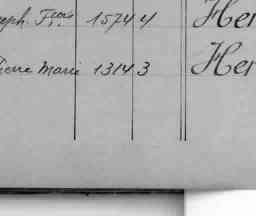 eph. Fçois 1574 4 Her
ierre Marie 1314 3 Her